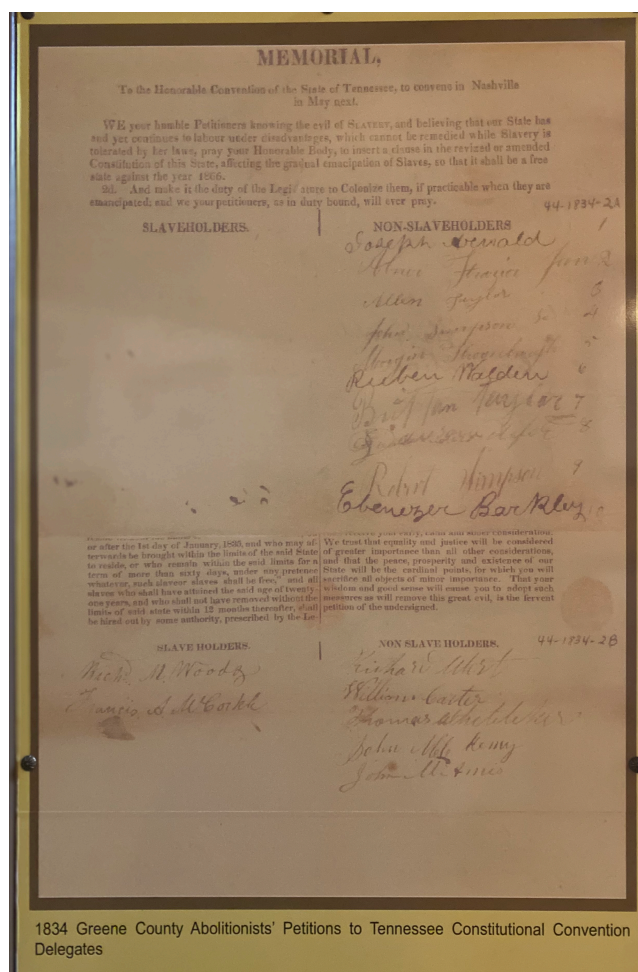 MEMORIAL,
To the Honorable Convention of the State of Tennessee, to convene in Nashville
in May next.
WE your humble Petitioners knowing the evil of SLAVERY, and believing that our State has
and yet continues to labour under disadvantages, which cannot be remedied while Slavery is
tolerated by her laws, pray your Honorable Body, to insert a clause in the revised or amended
Constitution of this State, affecting the gradual emancipation of Slaves, so that it shall be a free
state against the year 1866.
2d. And make it the duty of the Legislature to Colonize them, if practicable when they are
emancipated; and we your petitioners, as in duty bound, will ever pray.
44-1834-2A
SLAVEHOLDERS.
NON-SLAVEHOLDERS
1
Joseph
2
Allen Taylor 3
John Simpson 4
5
Rueben Walden 6
Taylor 7
8
Robert Simpson 9
Ebenezer Barkley 10
or after the 1st day of January, 1835, and who may af-
terwards be brought within the limits of the said State
to reside, or who remain within the said limits for a
term of more than sixty days, under any pretence
whatever, such slave or slaves shall be free," and all
slaves who shall have attained the said age of twenty-
one years, and who shall not have removed without the
limits of said state within 12 months thereafter, shall
be hired out by some authority, prescribed by the Le-
We trust that equality and justice will be considered
of greater importance than all other considerations,
and that the peace, prosperity and existence of our
State will be the cardinal points, for which you will
sacrifice all objects of minor importance. That your
wisdom and good sense will cause you to adopt such
measures as will remove this great evil, is the fervent
petition of the undersigned.
44-1834-2B
SLAVE HOLDERS.
NON SLAVE HOLDERS.
M. Woods
Francis A McCorkle
Richard West
William Carter
Thomas
John
John
1834 Greene County Abolitionists' Petitions to Tennessee Constitutional Convention
Delegates